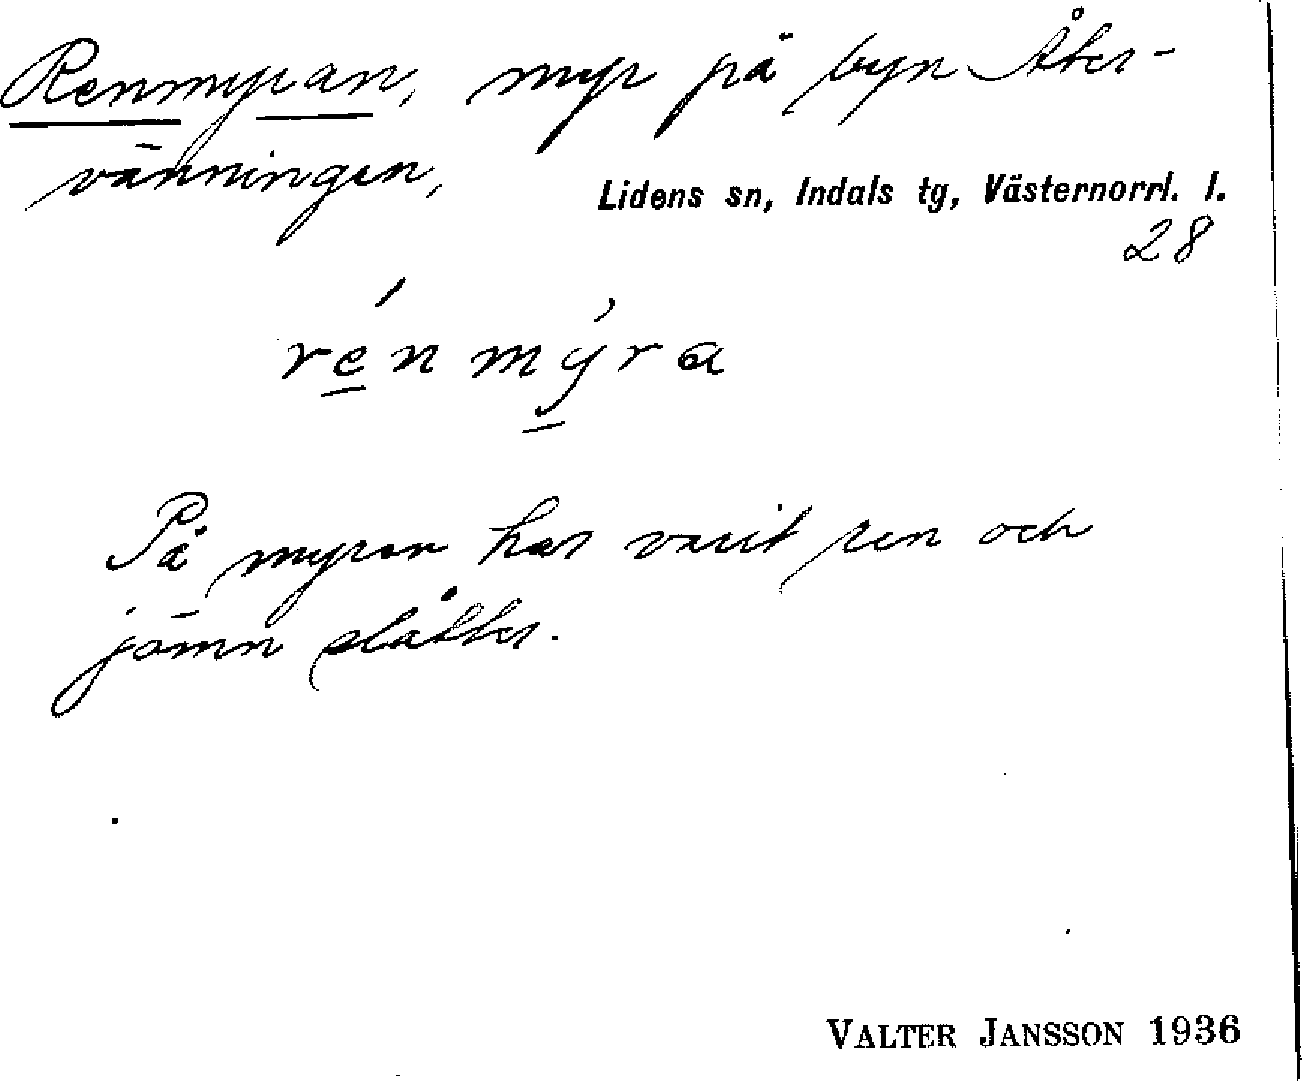 Renmyran, myr på byn Åter-
vänningen,
Lidens sn, Indals tg, Västernorrl. l.
28
rénmýra
På myran har varit ren och
jämn slåtter.
VALTER JANSSON 1936